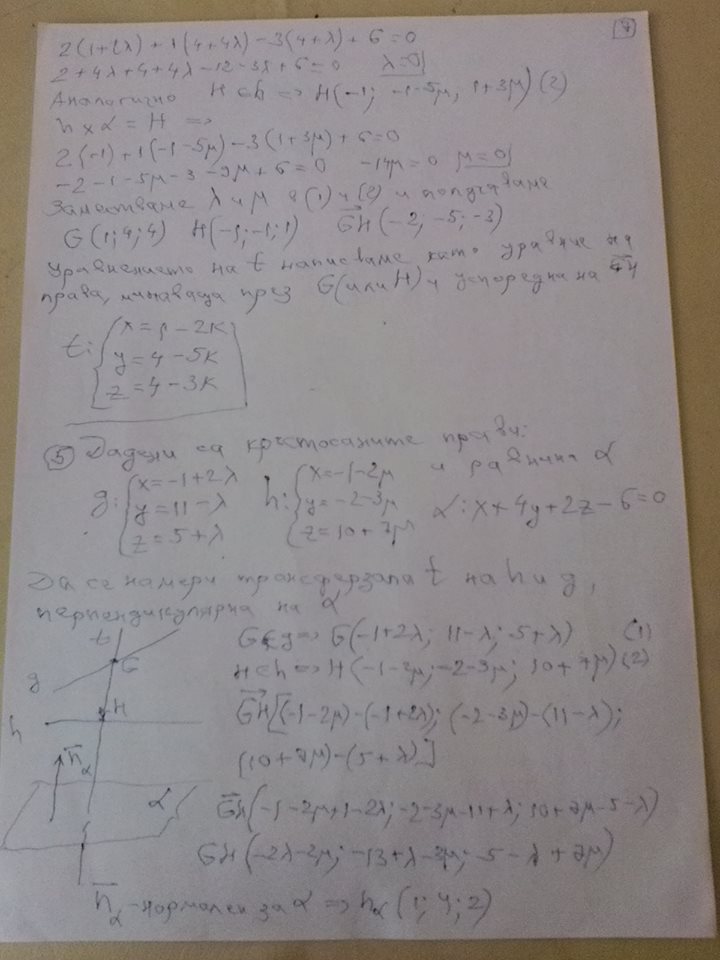 7
2(1+2λ)+1(4+4λ)-3(4+λ)+6=0
2+4λ+4+4λ-12-3λ+6=0 λ=0
Аналогично H ⊂ h => H(-1; -1-5μ, 1+3μ) (2)
h x α = H =>
2(-1)+1(-1-5μ)-3(1+3μ)+6=0
-2-1-5μ-3-9μ+6=0 -14μ=0 μ=0
Заместваме λ и μ в (1) и (2) и получаваме
G(1;4;4) H(-1;-1;1) GH(-2;-5;-3)
Уравнението на t написваме като уравние на
права, минаваща през G(или H) и успоредна на GH
t: x=1-2K
y=4-5K
z=4-3K
5 Дадени са кръстосаните прави:
g: x=-1+2λ h: x=-1-2μ и равнина α
y=11-λ y=-2-3μ α: x+4y+2z-6=0
z=5+λ z=10+7μ
Да се намери трансферзала t на h и g,
перпендикулярна на α
t
G∈g=> G(-1+2λ; 11-λ; 5+λ) (1)
G
H⊂h=> H(-1-2μ; -2-3μ; 10+7μ) (2)
g
H
h
GH[(-1-2μ)-(-1+2λ); (-2-3μ)-(11-λ);
(10+7μ)-(5+λ)]
nα
α
GH(-1-2μ+1-2λ; -2-3μ-11+λ; 10+7μ-5-λ)
GH(-2λ-2μ; -13+λ-3μ; 5-λ+7μ)
nα-нормален за α => nα(1; 4; 2)